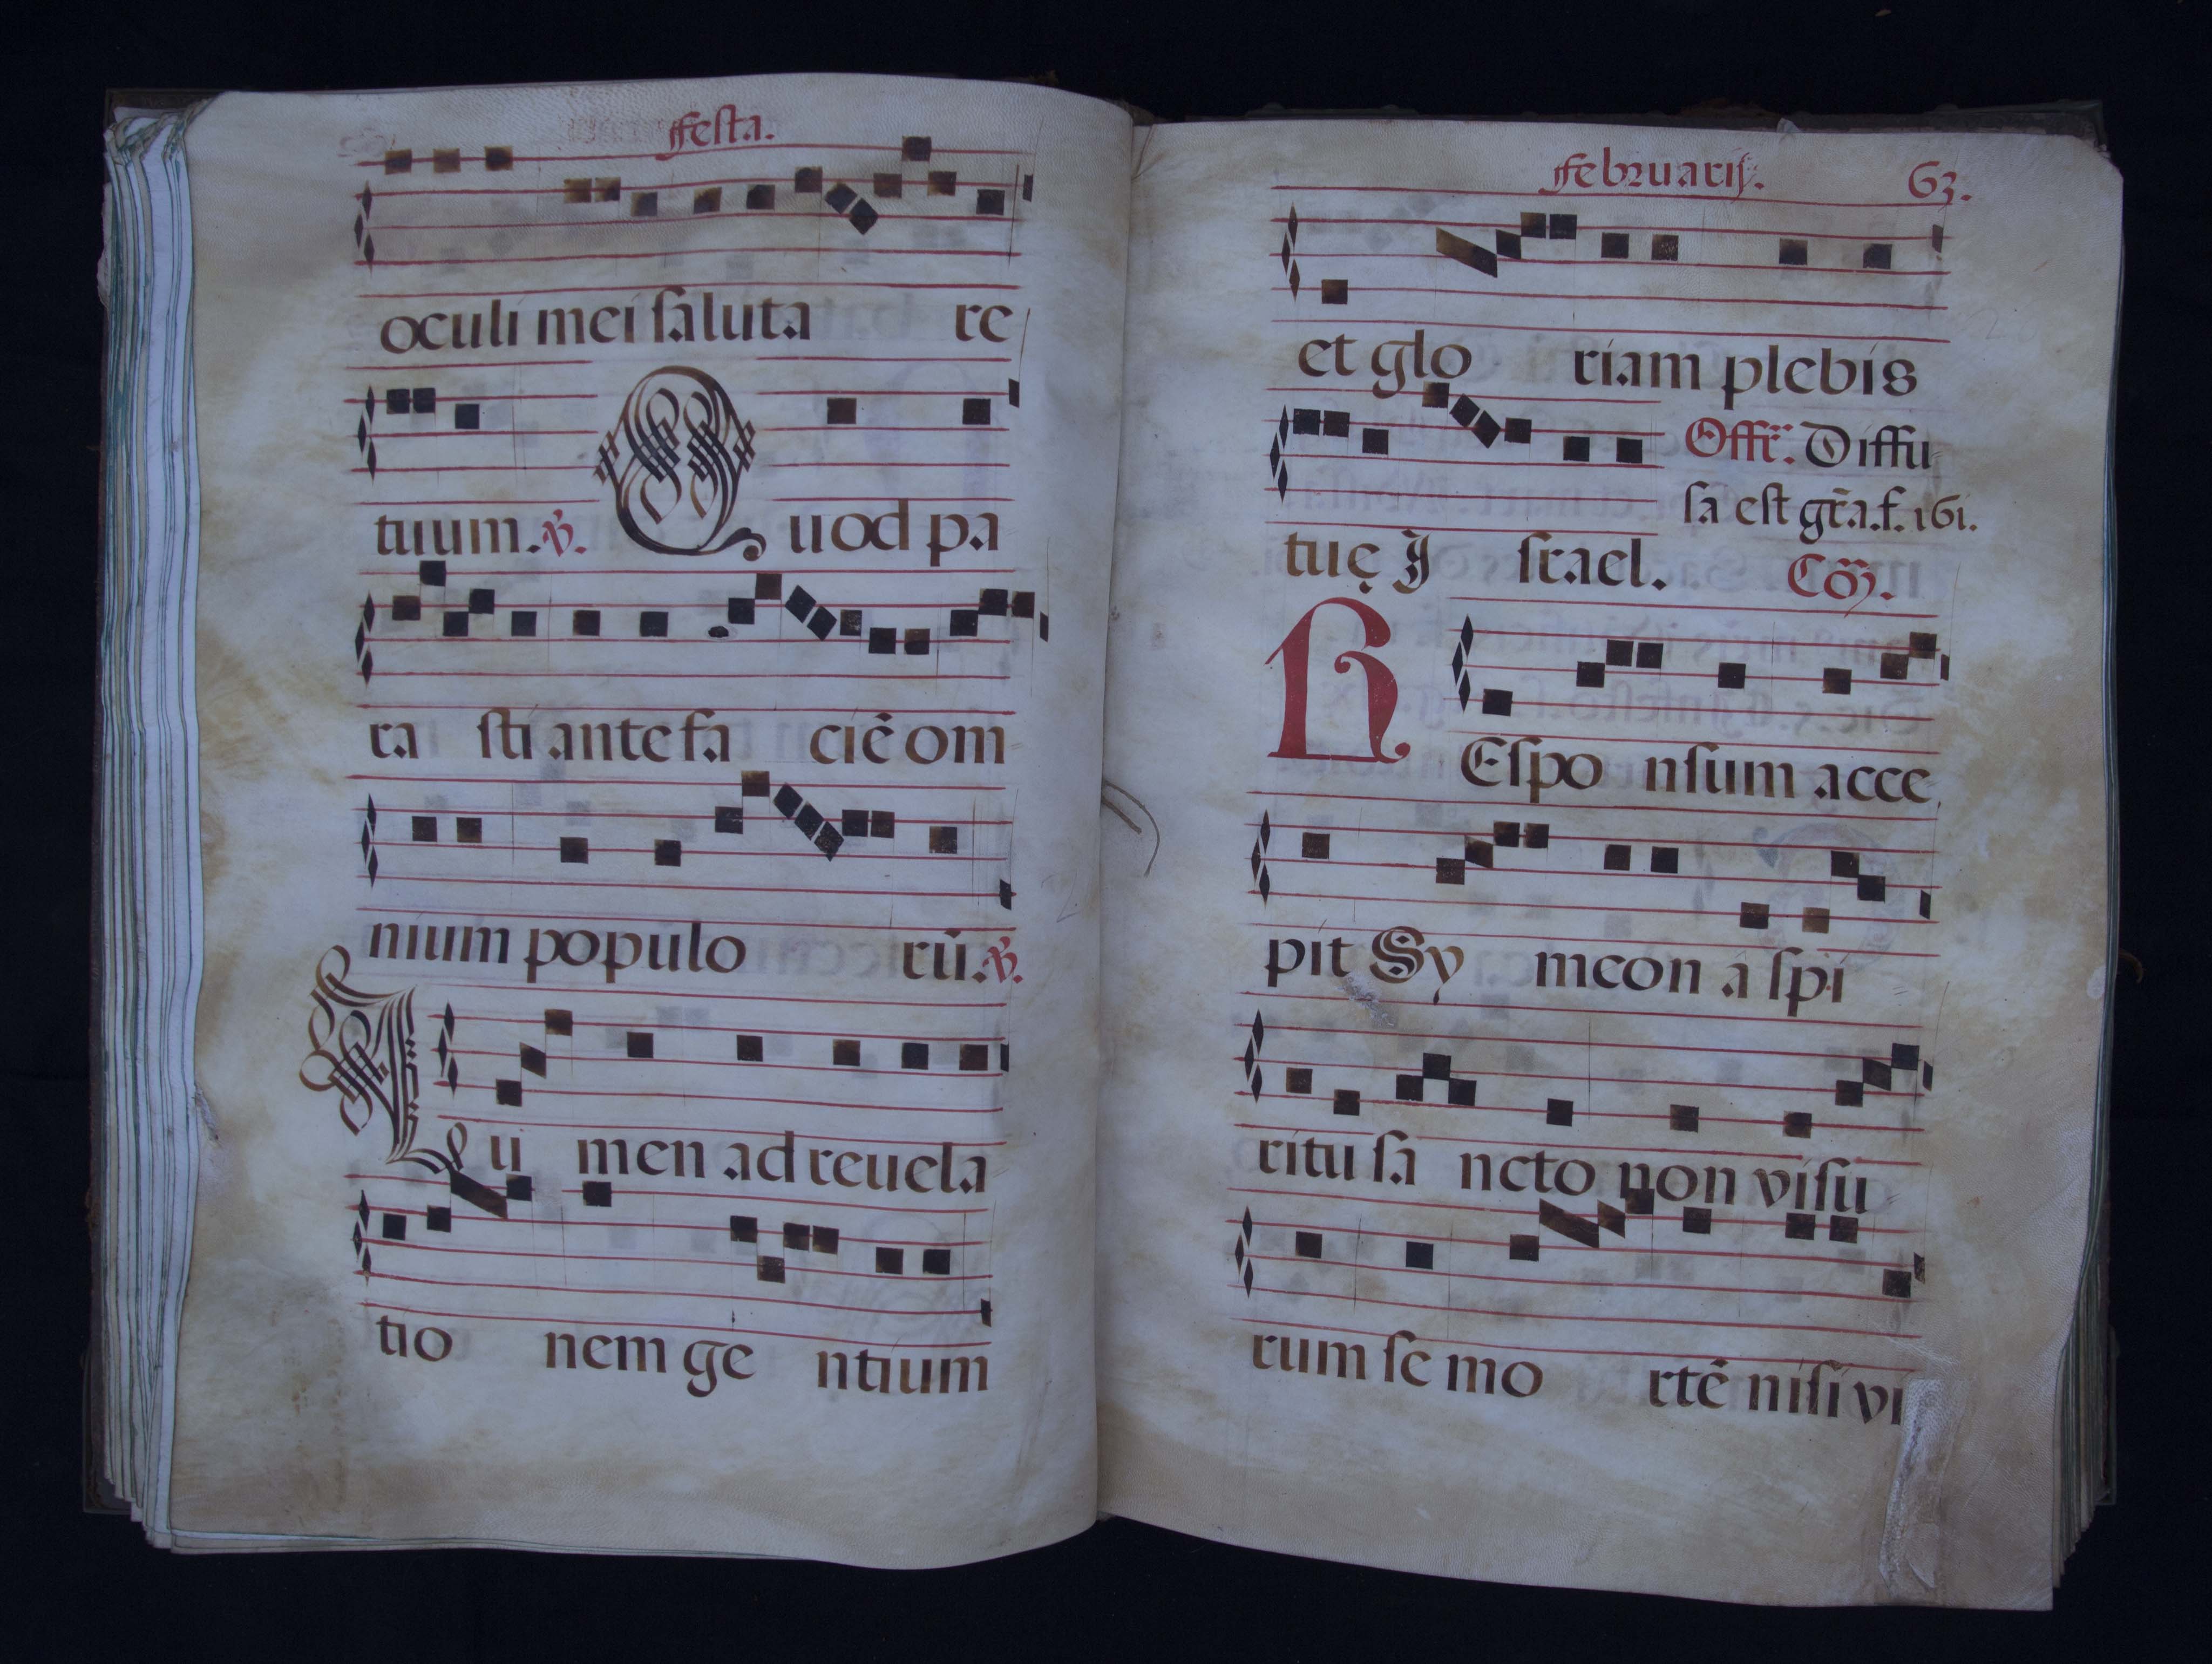 ffesta.
oculi mei saluta re
tuum. ℣. Quod pa
ra sti ante fa ciē om
nium populo rū. ℣.
Lu men ad reuela
tio nem ge ntium
ffebruarij. 63.
et glo riam plebis
Offē. Diffu
sa est grā.f. 161.
tuę I srael. Cōz.
REspo nsum acce
pit Sy meon á spi
ritu sa ncto non visu
rum se mo rtē nisi vi